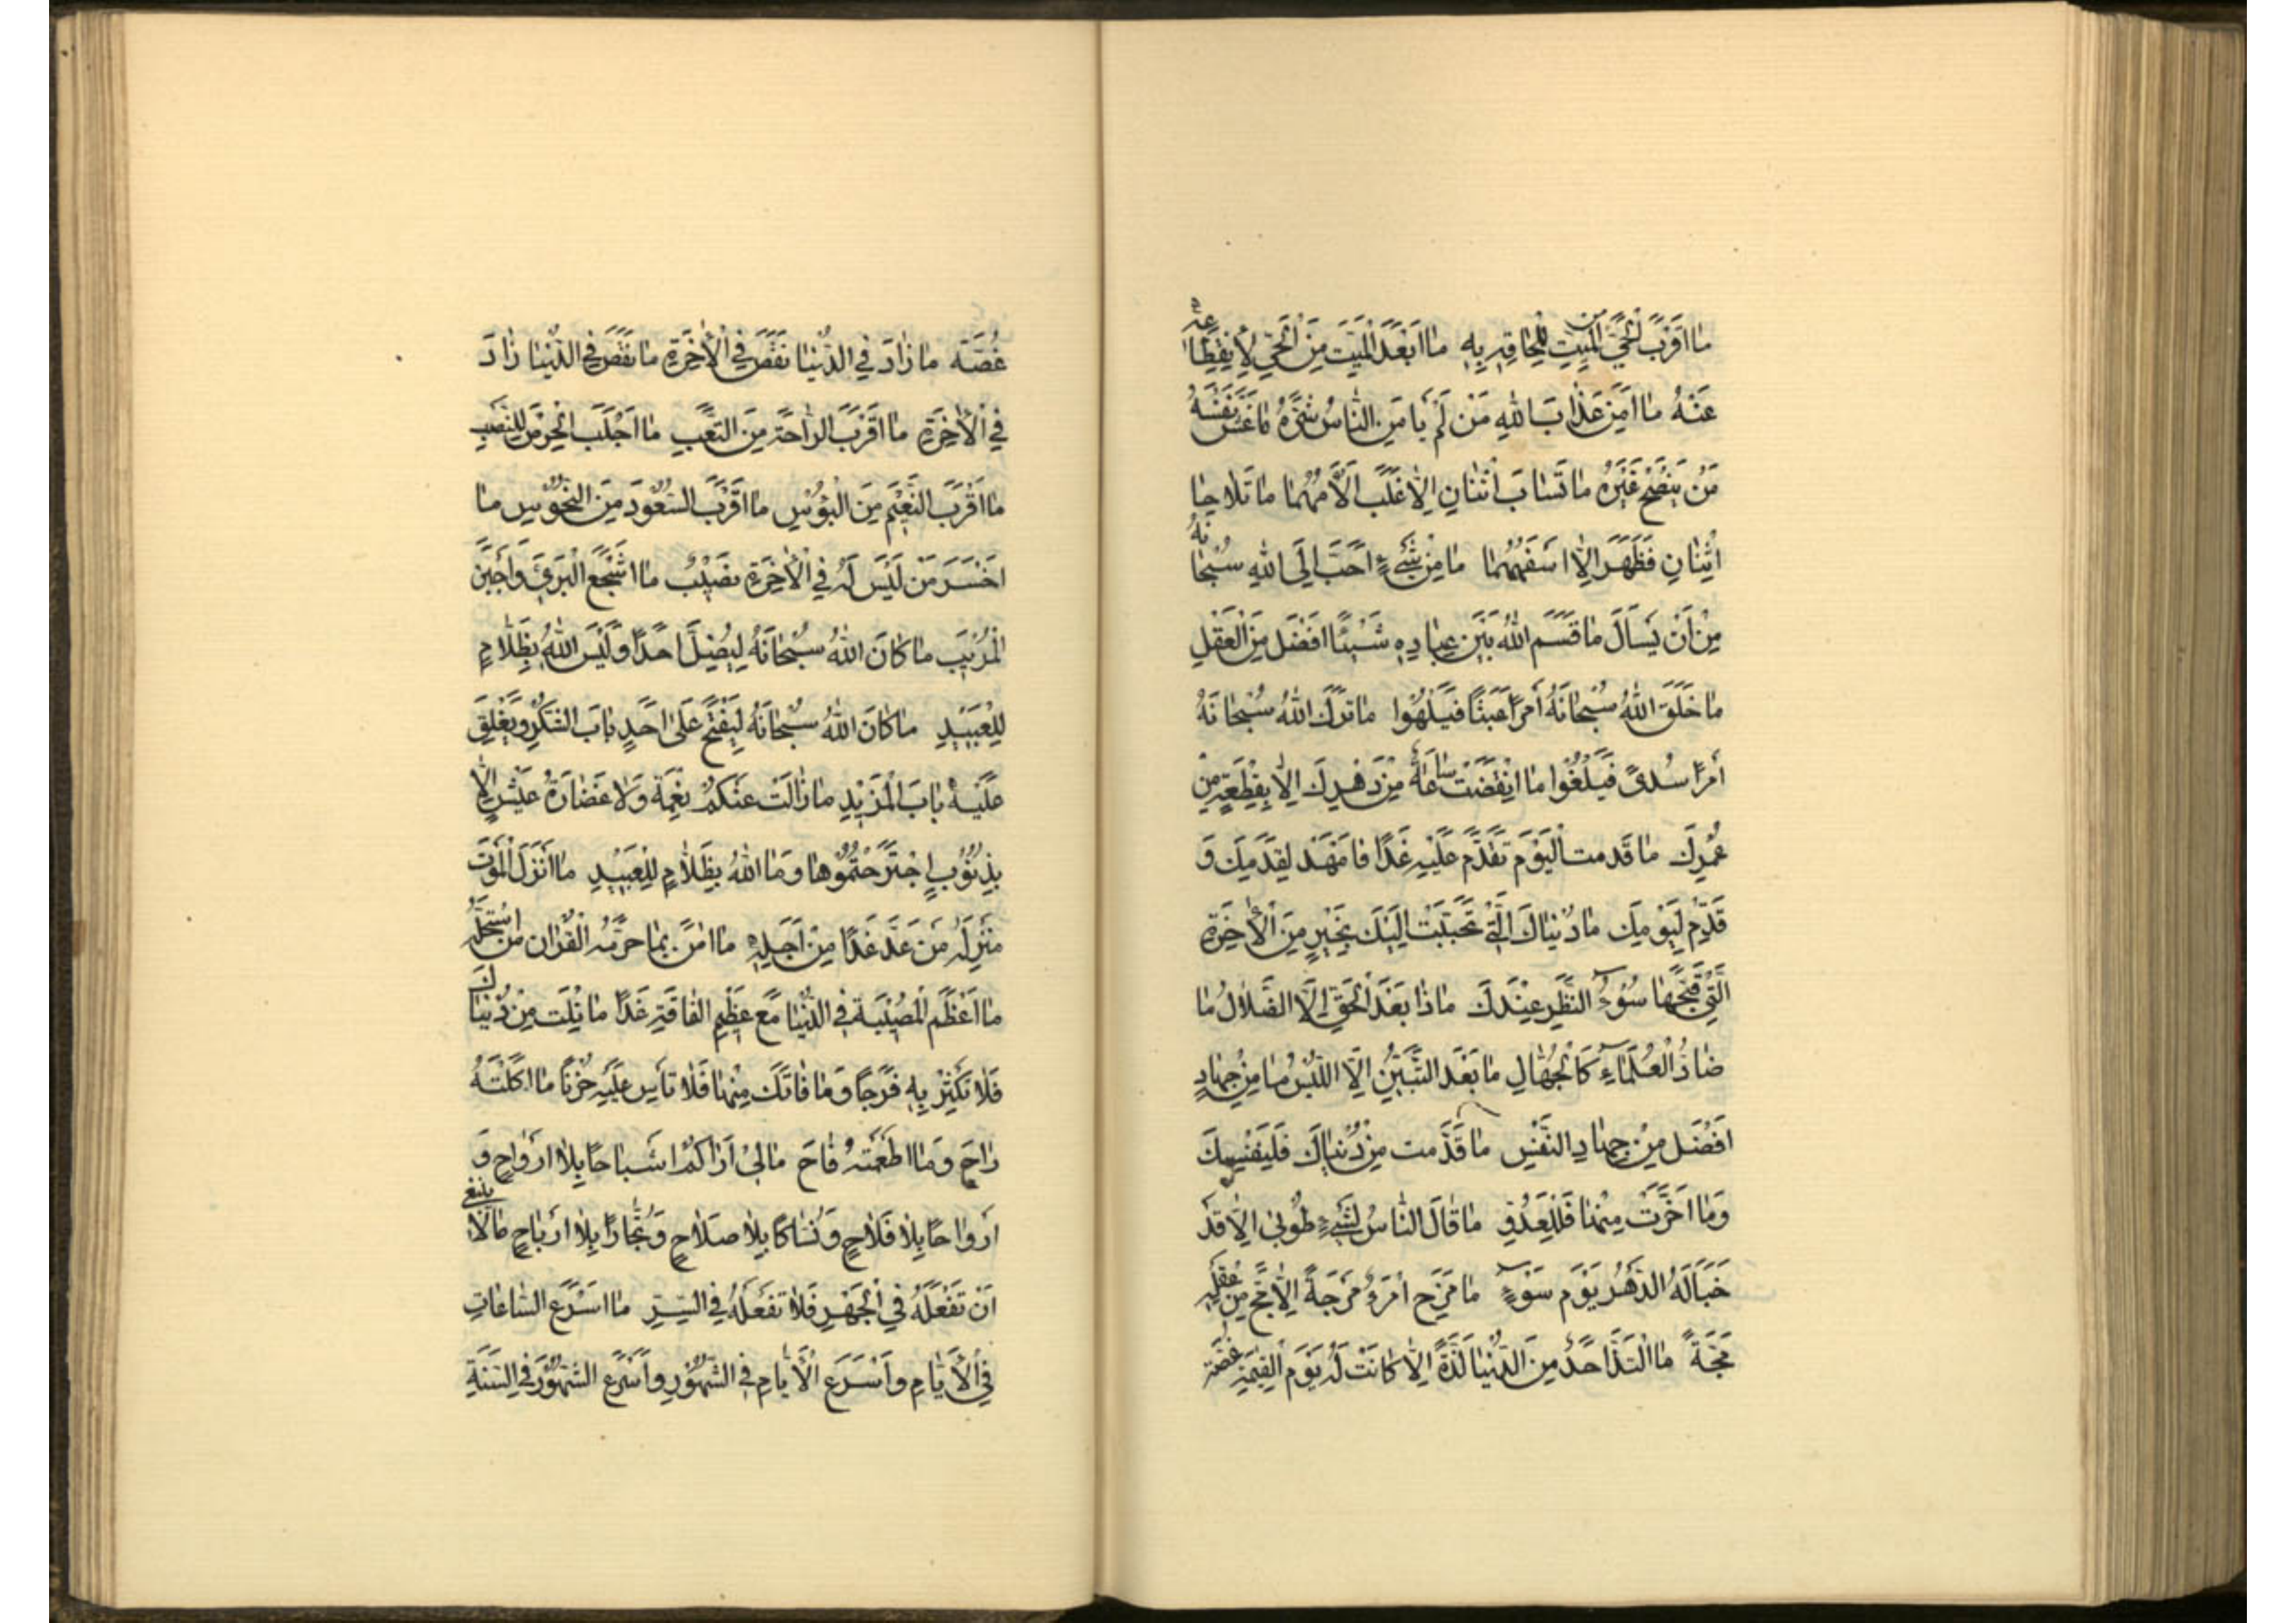 مَا اَقْرَبَ الْحَيَّ مِنَ الْمَيِّتِ لِلِحَاقِهِ بِهِ مَا اَبْعَدَ الْمَيِّتَ مِنَ الْحَيِّ لِاِنْقِطَاعِهِ
عَنْهُ مَا اَمِنَ عَذَابَ اللهِ مَنْ لَمْ يَاْمَنِ النَّاسُ شَرَّهُ مَا غَشَّ نَفْسَهُ
مَنْ يَنْصَحْ غَيْرَهُ مَا تَسَابَّ اثْنَانِ اِلَّا غَلَبَ اَلْاَمُهُمَا مَا تَلَاحَا
اثْنَانِ فَظَهَرَ اِلَّا اَسْفَهُهُمَا مَا مِنْ شَيْءٍ اَحَبَّ اِلَى اللهِ سُبْحَانَهُ
مِنْ اَنْ يُسْاَلَ مَا قَسَمَ اللهُ بَيْنَ عِبَادِهِ شَيْئًا اَفْضَلَ مِنَ الْعَقْلِ
مَا خَلَقَ اللهُ سُبْحَانَهُ اَمْرًا عَبَثًا فَيَلْهُوا مَا تَرَكَ اللهُ سُبْحَانَهُ
اَمْرًا سُدًى فَيَلْغُوا مَا انْقَضَتْ سَاعَةٌ مِنْ دَهْرِكَ اِلَّا بِقِطْعَةٍ مِنْ
عُمْرِكَ مَا قَدَّمْتَ الْيَوْمَ تَقْدَمْ عَلَيْهِ غَدًا فَامْهَدْ لِقَدَمِكَ وَ
قَدِّمْ لِيَوْمِكَ مَا دُنْيَاكَ الَّتِي تَحَبَّبَتْ اِلَيْكَ بِخَيْرٍ مِنَ الْاٰخِرَةِ
الَّتِي قَبَّحَهَا سُوْءُ النَّظَرِ عِنْدَكَ مَاذَا بَعْدَ الْحَقِّ اِلَّا الضَّلَالُ مَا
ضَادَّ الْعُلَمَاءَ كَالْجُهَّالِ مَا بَعْدَ التَّبَيُّنِ اِلَّا اللَّبْسُ مَا مِنْ جِهَادٍ
اَفْضَلَ مِنْ جِهَادِ النَّفْسِ مَا قَدَّمْتَ مِنْ دُنْيَاكَ فَلِنَفْسِكَ
وَمَا اَخَّرْتَ مِنْهَا فَلِلْعَدُوِّ مَا قَالَ النَّاسُ لِشَيْءٍ طُوْبٰى اِلَّا قَدْ
خَبَاَ لَهُ الدَّهْرُ يَوْمَ سَوْءٍ مَا مَزَحَ امْرَؤٌ مَزْحَةً اِلَّا مَجَّ مِنْ عَقْلِهِ
مَجَّةً مَا الْتَذَّ اَحَدٌ مِنَ الدُّنْيَا لَذَّةً اِلَّا كَانَتْ لَهُ يَوْمَ الْقِيٰمَةِ غُصَّةً
غُصَّة مَا زَادَ فِي الدُّنْيَا نَقَصَ فِي الْاٰخِرَةِ مَا نَقَصَ فِي الدُّنْيَا زَادَ
فِي الْاٰخِرَةِ مَا اَقْرَبَ الرَّاحَةَ مِنَ التَّعَبِ مَا اَجْلَبَ الْحِرْصَ لِلنَّصَبِ
مَا اَقْرَبَ النَّعِيْمَ مِنَ الْبُؤْسِ مَا اَقْرَبَ السُّعُوْدَ مِنَ النُّحُوْسِ مَا
اَخْسَرَ مَنْ لَيْسَ لَهُ فِي الْاٰخِرَةِ نَصِيْبٌ مَا اَشْجَعَ الْبَرِيَّ وَاَجْبَنَ
الْمُرِيْبَ مَا كَانَ اللهُ سُبْحَانَهُ لِيُضِلَّ اَحَدًا وَلَيْسَ اللهُ بِظَلَّامٍ
لِلْعَبِيْدِ مَا كَانَ اللهُ سُبْحَانَهُ لِيَفْتَحَ عَلٰى اَحَدٍ بَابَ الشُّكْرِ وَيُغْلِقَ
عَلَيْهِ بَابَ الْمَزِيْدِ مَا زَالَتْ عَنْكُمْ نِعْمَةٌ وَلَا غَضَارَةُ عَيْشٍ اِلَّا
بِذُنُوْبٍ اجْتَرَحْتُمُوْهَا وَمَا اللهُ بِظَلَّامٍ لِلْعَبِيْدِ مَا اَنْزَلَ الْمَوْتَ
مَنْزِلَهُ مَنْ عَدَّ غَدًا مِنْ اَجَلِهِ مَا اٰمَنَ بِمَا حَرَّمَهُ الْقُرْاٰنُ مَنِ اسْتَحَلَّهُ
مَا اَعْظَمَ الْمُصِيْبَةَ فِي الدُّنْيَا مَعَ عَظِيْمِ الْفَاقَةِ غَدًا مَا نِلْتَ مِنْ دُنْيَاكَ
فَلَا تُكْثِرْ بِهِ فَرَحًا وَمَا فَاتَكَ مِنْهَا فَلَا تَاْسَ عَلَيْهِ حُزْنًا مَا اَكَلْتَهُ
رَاحَ وَمَا اَطْعَمْتَهُ فَاحَ مَا لِيْ اَرَاكُمْ اَشْبَاحًا بِلَا اَرْوَاحٍ وَ
اَرْوَاحًا بِلَا فَلَاحٍ وَنُسَّاكًا بِلَا صَلَاحٍ وَتُجَّارًا بِلَا اَرْبَاحٍ مَا لَا يَنْبَغِي
اَنْ تَفْعَلَهُ فِي الْجَهْرِ فَلَا تَفْعَلْهُ فِي السِّرِّ مَا اَسْرَعَ السَّاعَاتِ
فِي الْاَيَّامِ وَاَسْرَعَ الْاَيَّامِ فِي الشُّهُوْرِ وَاَسْرَعَ الشُّهُوْرَ فِي السَّنَةِ